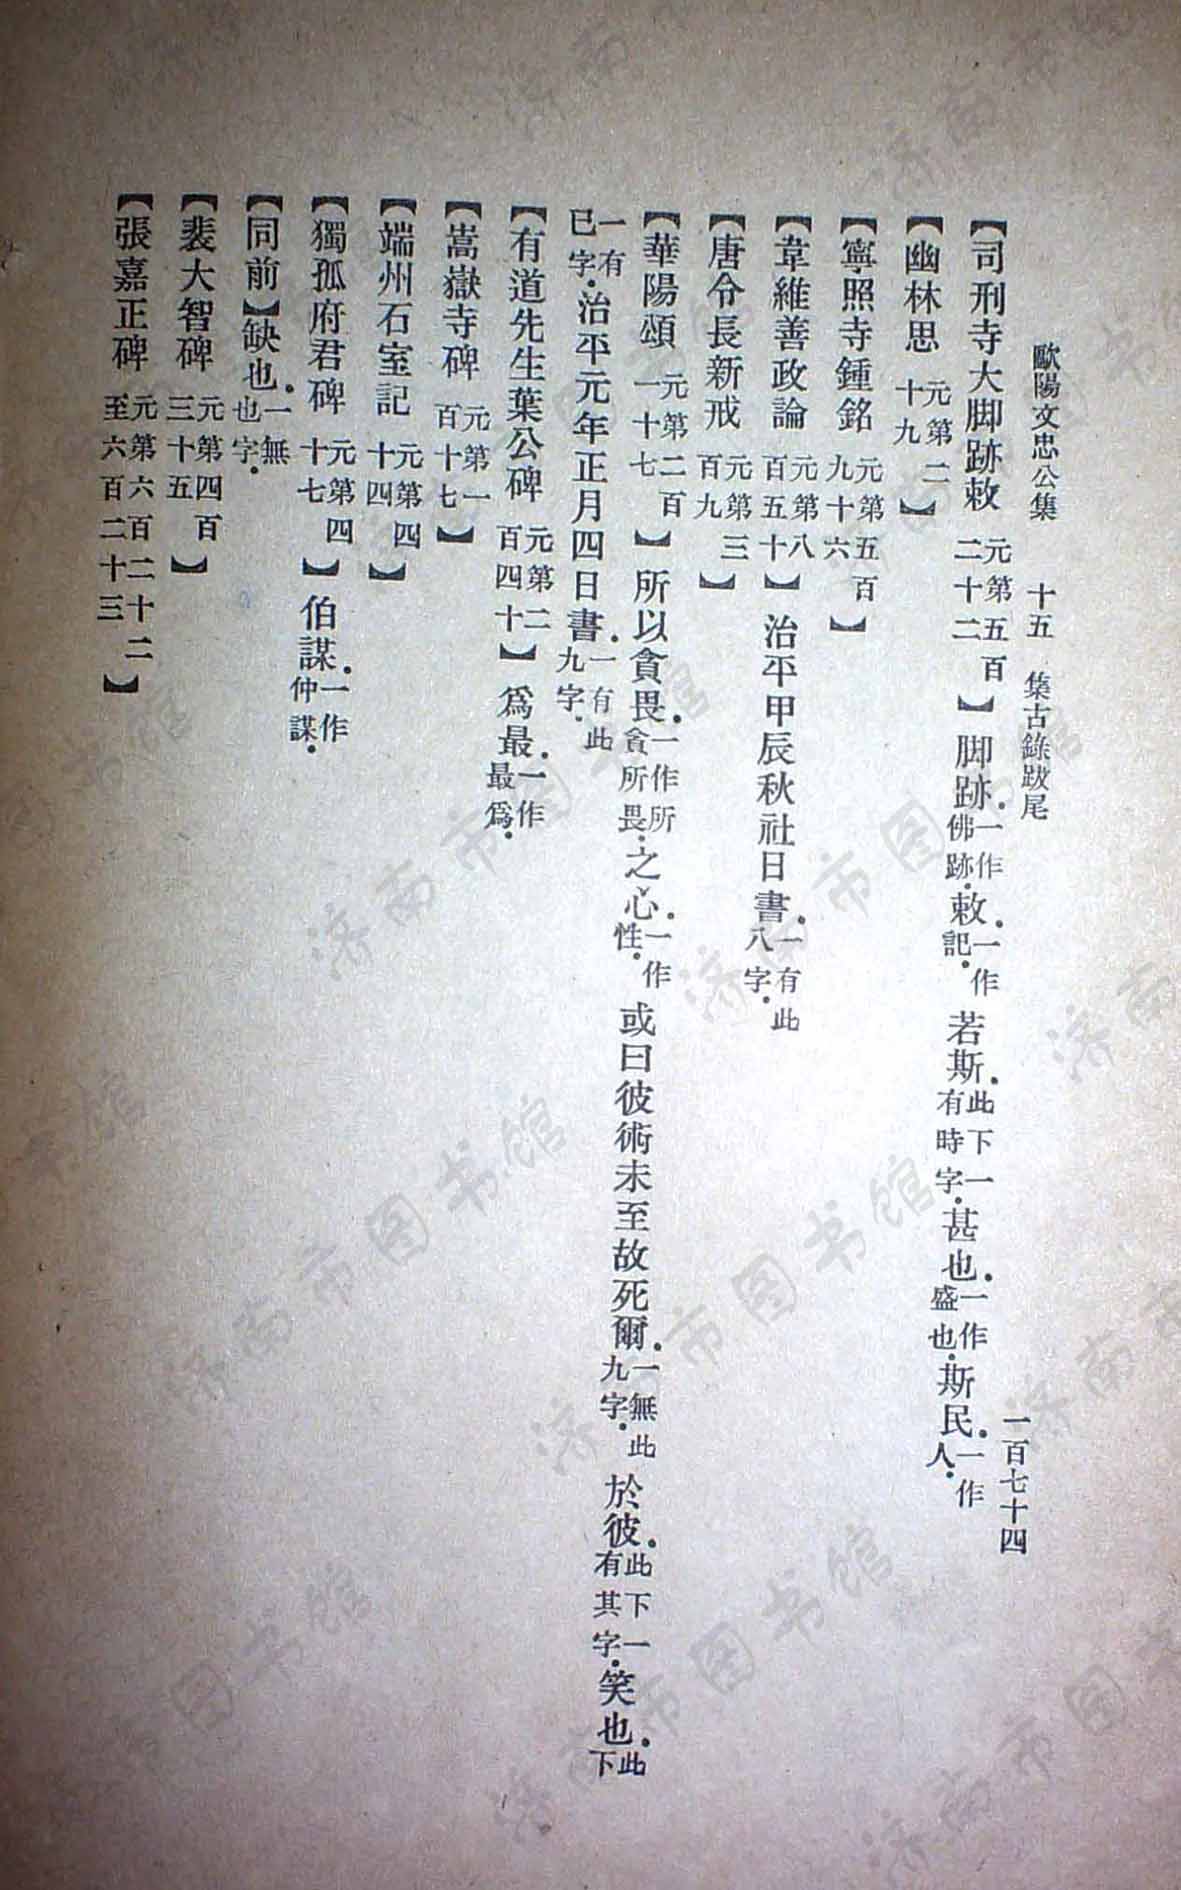 歐陽文忠公集　十五　集古錄跋尾　一百七十四
【司刑寺大脚跡敕元第五百二十二】脚跡·一作佛跡·敕·一作記·若斯·此下一有時字·甚也·一作盛也·斯民·一作人·
【幽林思元第二十九】
【寧照寺鍾銘元第五百九十六】
【韋維善政論元第八百五十】治平甲辰秋社日書·一有此八字·
【唐令長新戒元第三百九】
【華陽頌元第二百一十七】所以貪畏·一作所貪所畏·之心·一作性·或曰彼術未至故死爾·一無此九字·於彼·此下一有其字·笑也·此下
一有已字·治平元年正月四日書·一有此九字·
【有道先生葉公碑元第二百四十】爲最·一作最爲·
【嵩嶽寺碑元第一百十七】
【端州石室記元第四十四】
【獨孤府君碑元第四十七】伯謀·一作仲謀·
【同前】缺也·一無也字·
【裴大智碑元第四百三十五】
【張嘉正碑元第六百二十二至六百二十三】
济南市图书馆